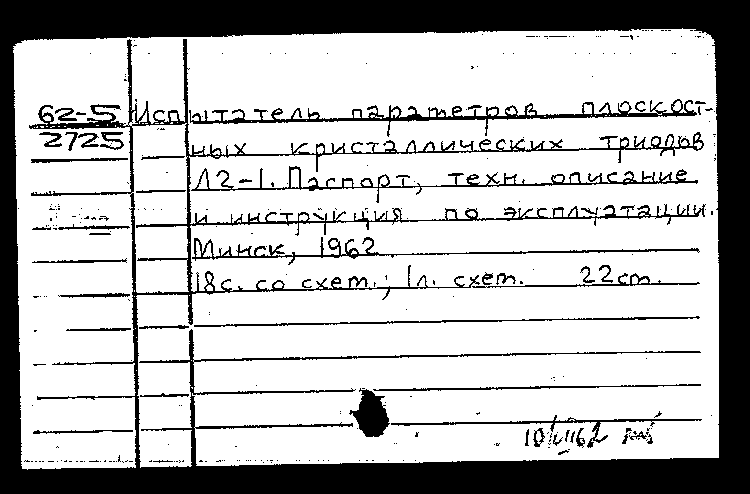 62-5 Испытатель параметров плоскост-
2725 ных кристаллических триодов
Л2-1. Паспорт, техн. описание
и инструкция по эксплуатации.
Минск, 1962.
18с. со схем.; 1л. схем. 22см.